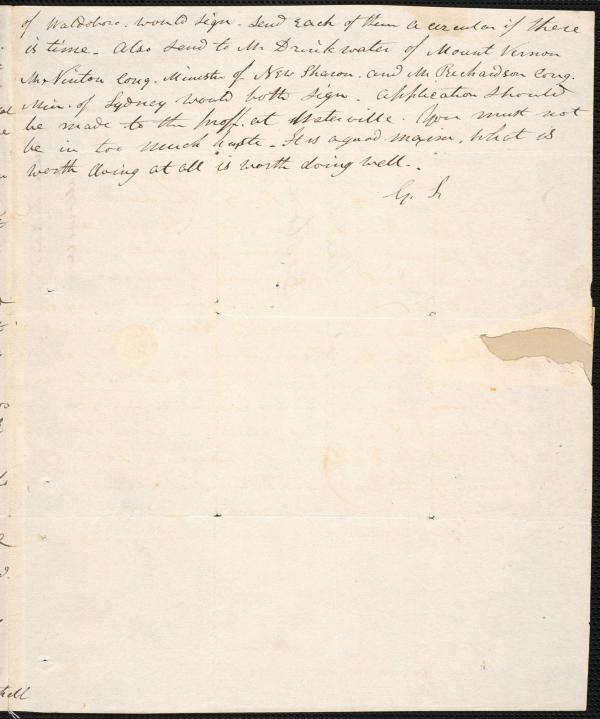 of Waldoboro. would sign. Send each of them a circular if there
is time. Also send to Mr Drinkwater of Mount Vernon
Mr Vinton Cong. Minister of New Sharon. and Mr Richardson Cong.
Min. of Sydney would both sign. Application should
be made to the Prof. at Waterville. You must not
be in too much haste. It is a good maxim, What is
worth doing at all is worth doing well.
G. S.